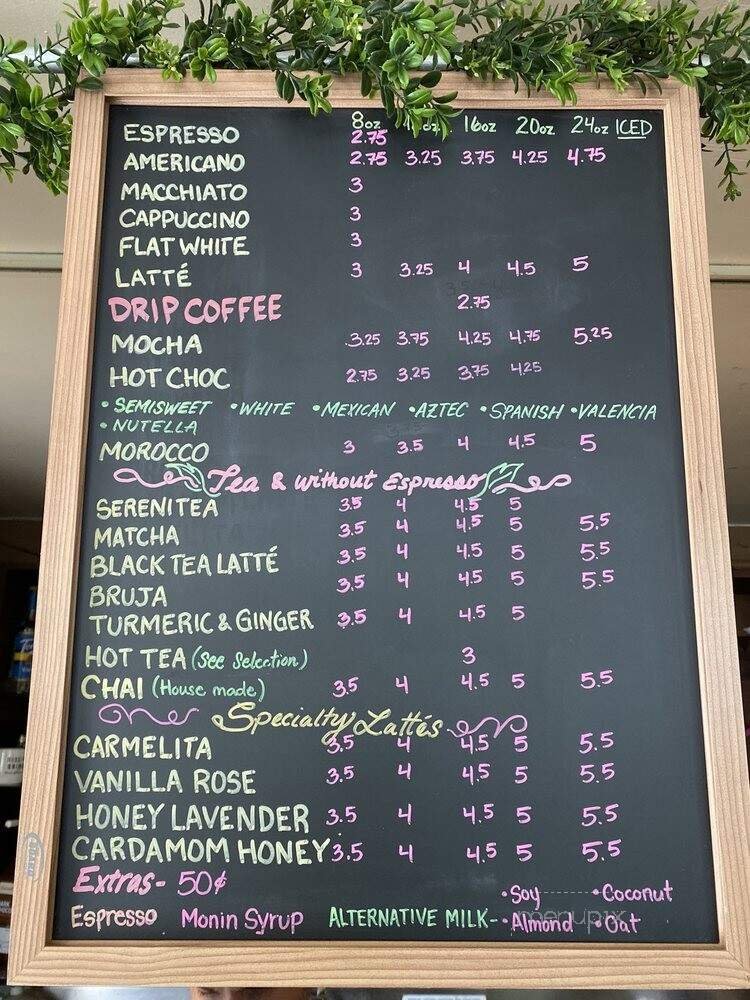 8oz 16oz 20oz 24oz ICED
ESPRESSO 2.75
AMERICANO 2.75 3.25 3.75 4.25 4.75
MACCHIATO 3
CAPPUCCINO 3
FLAT WHITE 3
LATTÉ 3 3.25 4 4.5 5
DRIP COFFEE 2.75
MOCHA 3.25 3.75 4.25 4.75 5.25
HOT CHOC 2.75 3.25 3.75 4.25
• SEMISWEET • WHITE • MEXICAN • AZTEC • SPANISH • VALENCIA
• NUTELLA
MOROCCO 3 3.5 4 4.5 5
Tea & without Espresso
SERENITEA 3.5 4 4.5 5
MATCHA 3.5 4 4.5 5 5.5
BLACK TEA LATTÉ 3.5 4 4.5 5 5.5
BRUJA 3.5 4 4.5 5 5.5
TURMERIC & GINGER 3.5 4 4.5 5
HOT TEA (See Selection) 3
CHAI (House made) 3.5 4 4.5 5 5.5
Specialty Lattés
CARMELITA 3.5 4 4.5 5 5.5
VANILLA ROSE 3.5 4 4.5 5 5.5
HONEY LAVENDER 3.5 4 4.5 5 5.5
CARDAMOM HONEY 3.5 4 4.5 5 5.5
Extras - 50¢
• Soy • Coconut
Espresso Monin Syrup ALTERNATIVE MILK - • Almond • Oat
menupix